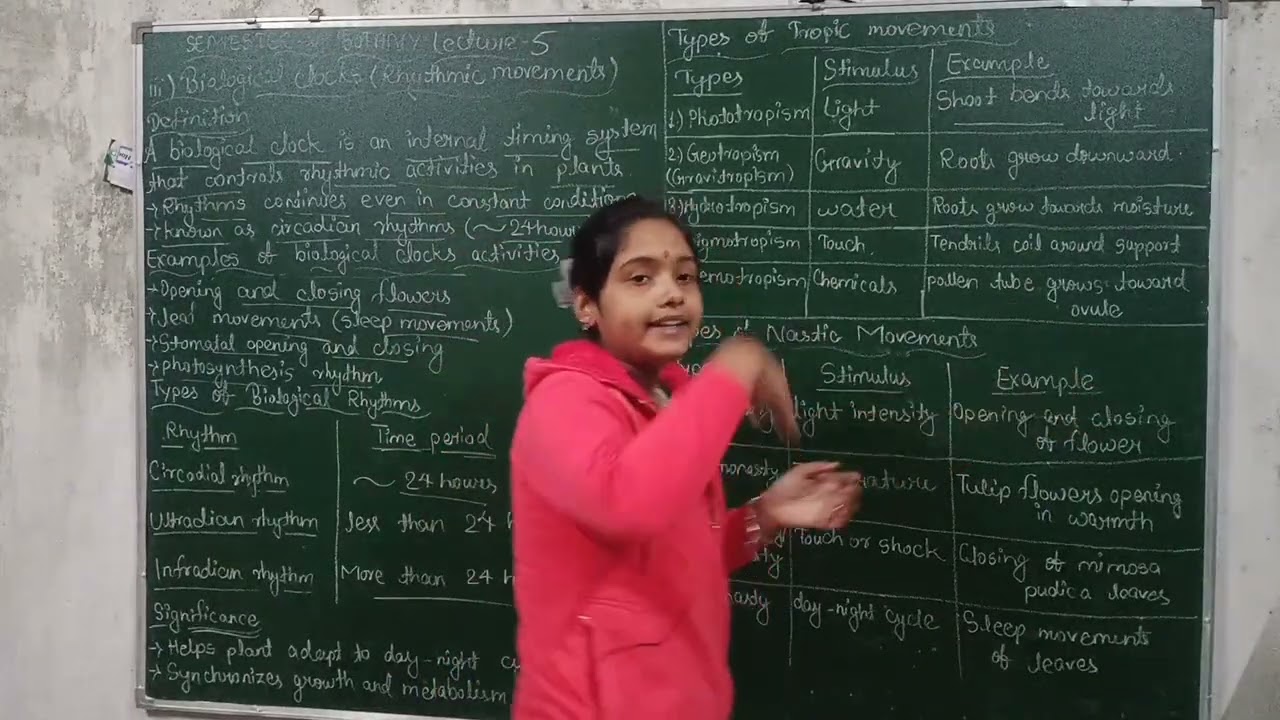 SEMESTER BOTANY Lecture-5
iii) Biological clocks (Rhythmic movements)
Definition
A biological clock is an internal timing system
that controls rhythmic activities in plants.
→ Rhythms continues even in constant condition
→ known as circadian rhythms (~24hour
Examples of biological clocks activities
→ Opening and closing flowers
→ leaf movements (sleep movements)
→ Stomatal opening and closing
→ photosynthesis rhythm
Types of Biological Rhythms
Rhythm Time period
Circadial rhythm ~ 24 hours
Ultradian rhythm less than 24 h
Infradian rhythm More than 24 h
Significance
→ Helps plant adapt to day-night c
→ Synchronizes growth and metabolism
Types of Tropic movements
Types Stimulus Example
1.) Phototropism Light Shoot bends towards
light
2.) Geotropism Gravity Roots grow downward.
(Gravitropism)
3) Hydrotropism water Roots grow towards moisture
igmotropism Touch Tendrils coil around support
emotropism Chemicals pollen tube grows toward
ovule
es of Nastic Movements
Stimulus Example
light intensity Opening and closing
of flower
monasty rature Tulip flowers opening
in warmth
Touch or shock Closing of mimosa
pudica leaves
nasty day-night cycle Sleep movements
of leaves